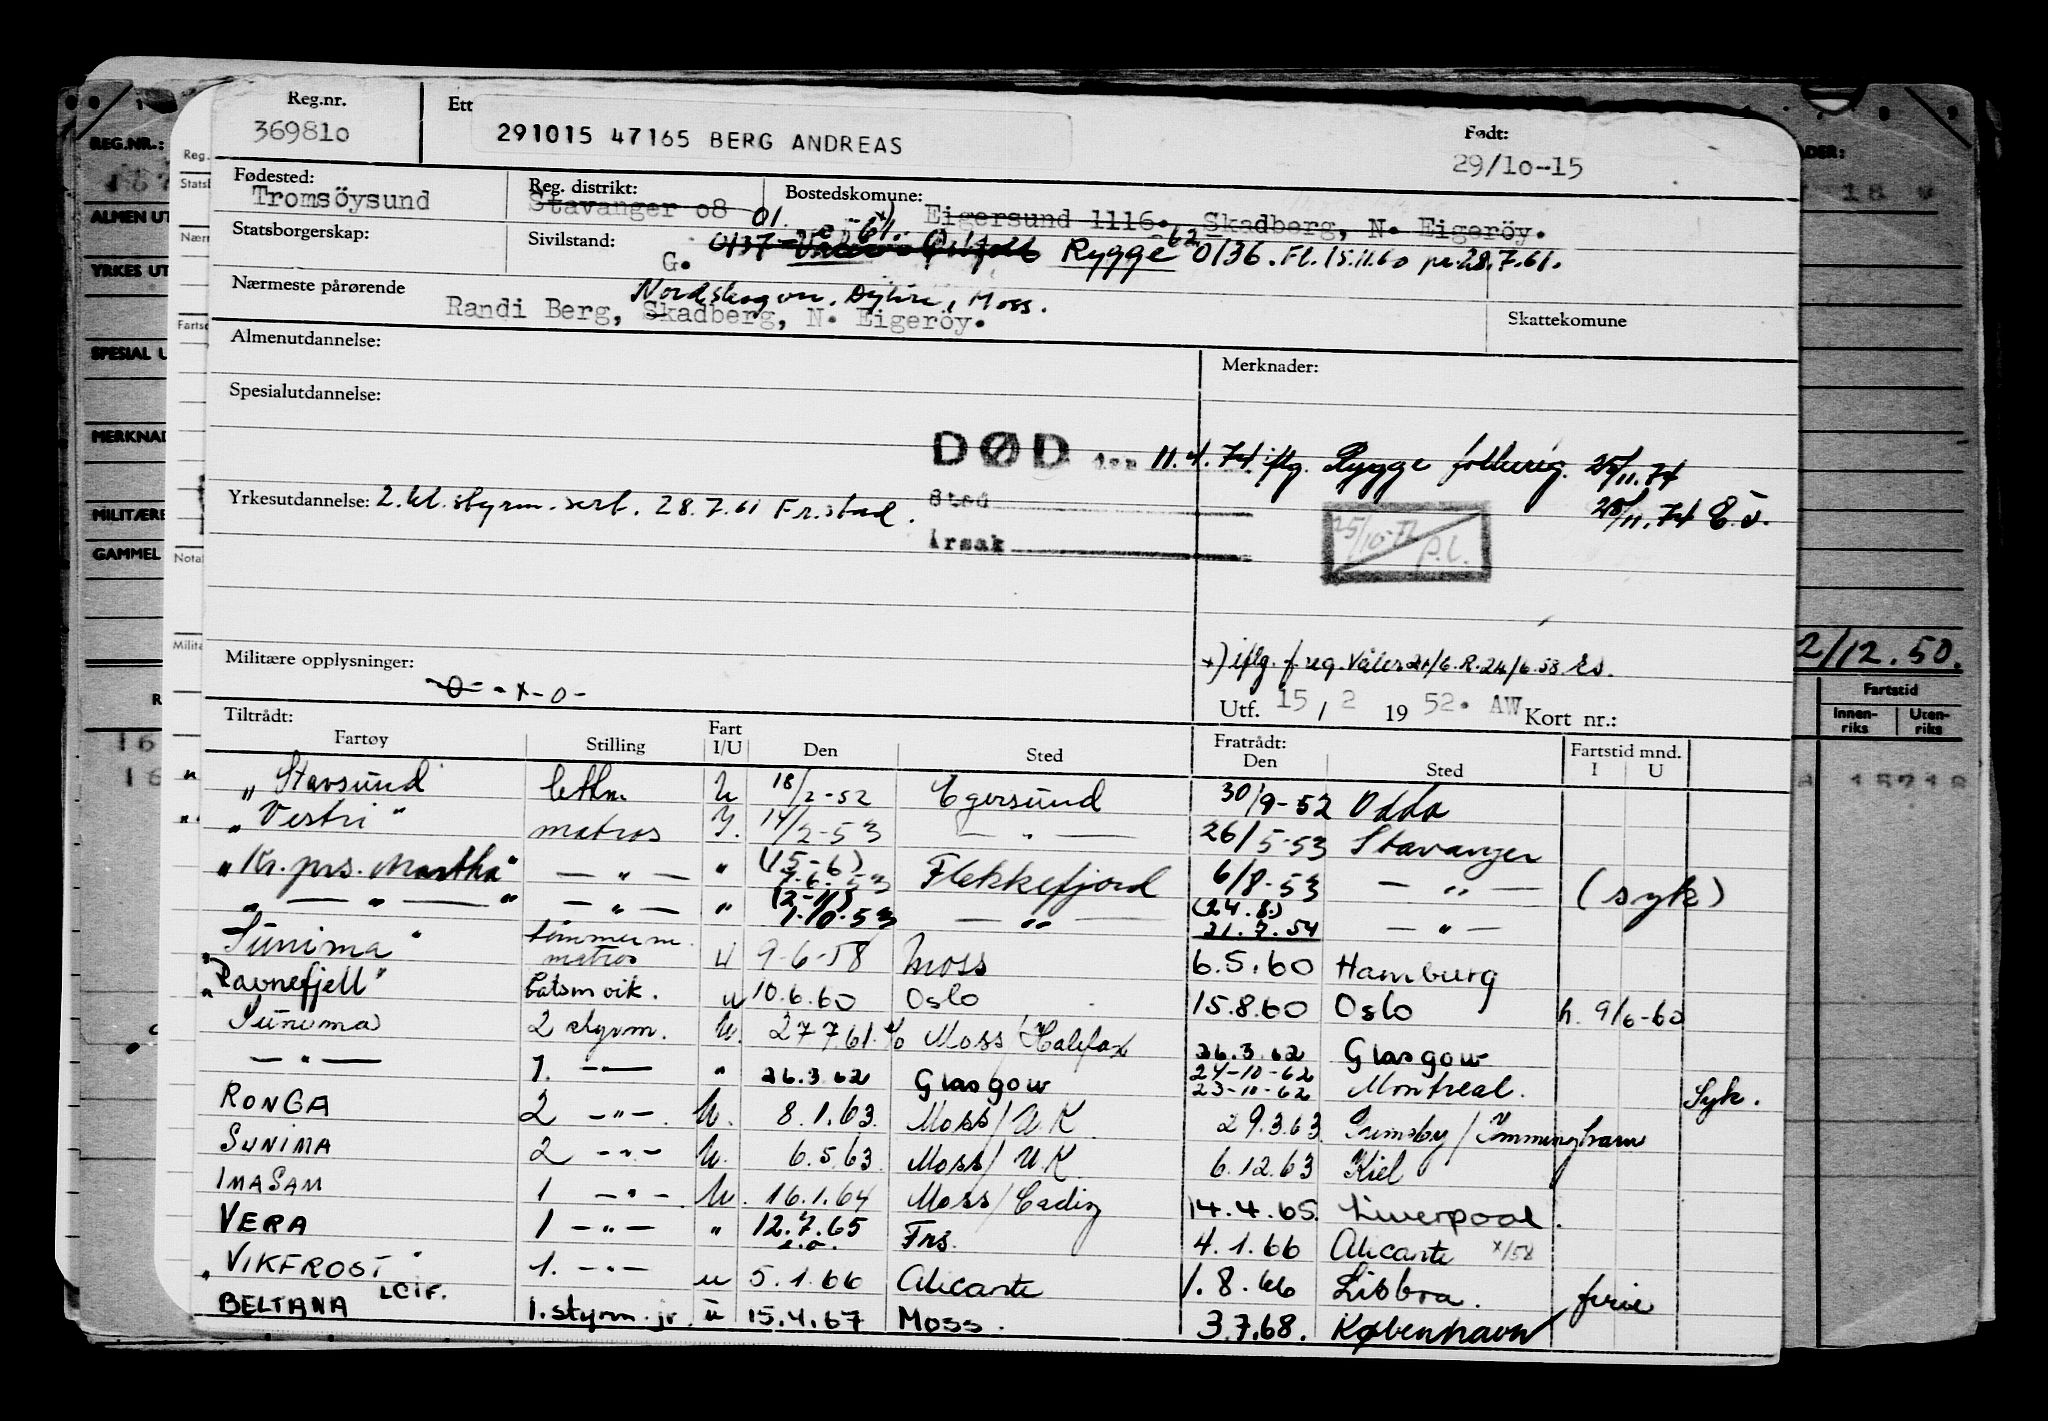 Reg.nr. Ett Født:
369810 291015 47165 BERG ANDREAS 29/10-15
Fødested: Reg. distrikt: Bostedskomune:
Tromsöysund Stavanger 08 01. Eigersund 1116. Skadberg, N. Eigeröy.
Statsborgerskap: Sivilstand:
G. 0137 Rygge 62 0136. Fl. 15.11.60 pr. 28.7.61.
Nærmeste pårørende Moss.
Randi Berg, Skadberg, N. Eigeröy. Skattekomune
Almenutdannelse: Merknader:
Spesialutdannelse:
DØD den 11.4.74 iflg. Rygge folkereg. 25/11.74
Sted 28/11.74
Yrkesutdannelse: 2. kl. styrm. sert. 28.7.61 Fr.stad.
Årsak 25/10-72 P.L.
Militære opplysninger: x) iflg. f.reg. Våler 21/6. R. 24/6.58
-0- -x-0-
Utf. 15 / 2 19 52. AW Kort nr.:
Tiltrådt: Fratrådt: Fartstid mnd.
Fartøy Stilling Fart I/U Den Sted Den Sted I U
"Stavsund" lettm. U 18/2-52 Egersund 30/9-52 Odda
"Vestri" matros I. 14/2-53 — " — 26/5-53 Stavanger
"Kr. prs. Martha" — " — " (15-6) 7.6.53 Flekkefjord 6/8-53 — " — (syk)
" — " — " — " — " (2-11) 1.10.53 — " — (24.8.) 21.7.54 — " —
"Sunima" tømmerm. matros U 9-6-58 Moss 6.5.60 Hamburg
"Ravnefjell" batsm vik. u 10.6.60 Oslo 15.8.60 Oslo h. 9/6-60
"Sunima 2 styrm. U. 27 7 61 Moss/Halifax 26.3.62 Glasgow
— " — 1. — " — " 26.3.62 Glasgow 24-10-62 23-10-62 Montreal. Syk.
RONGA 2 — " — U. 8.1.63. Moss/UK 29.3.63 Grimsby/Immingham
SUNIMA 2 — " — U. 6.5.63. Moss/UK 6.12.63 Kiel
IMASAM 1 — " — U. 16.1.64 Moss/Cadiz 14.4.65. Liverpool.
VERA 1 — " — " 12.7.65 Frs. 4.1.66 Alicante x/58
"VIKFROST" 1. — " — u 5.1.66 Alicante 1.8.66 Lissboa. ferie
BELTANA LCIF. 1. styrm. jr. u 15.4.67 Moss. 3.7.68. København
REG.NR.:
ALMEN UT
YRKES UT
SPESIAL U
MERKNAD
MILITÆRE
GAMMEL
2/12.50.
Fartstid
Innen-riks Uten-riks